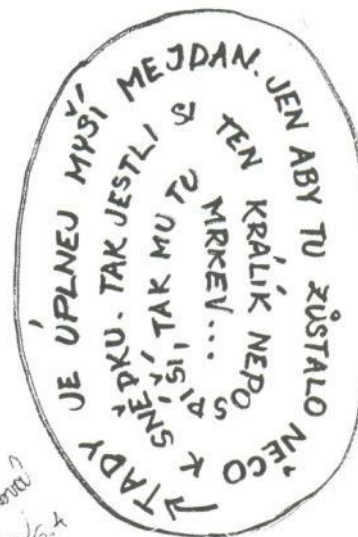 →TADY JE ÚPLNEJ MYŠÍ MEJDAN. JEN ABY TU ZŮSTALO NĚCO K SNĚDKU. TAK JESTLI SI TEN KRÁLÍK NEPOSPÍŠÍ, TAK MU TU MRKEV...